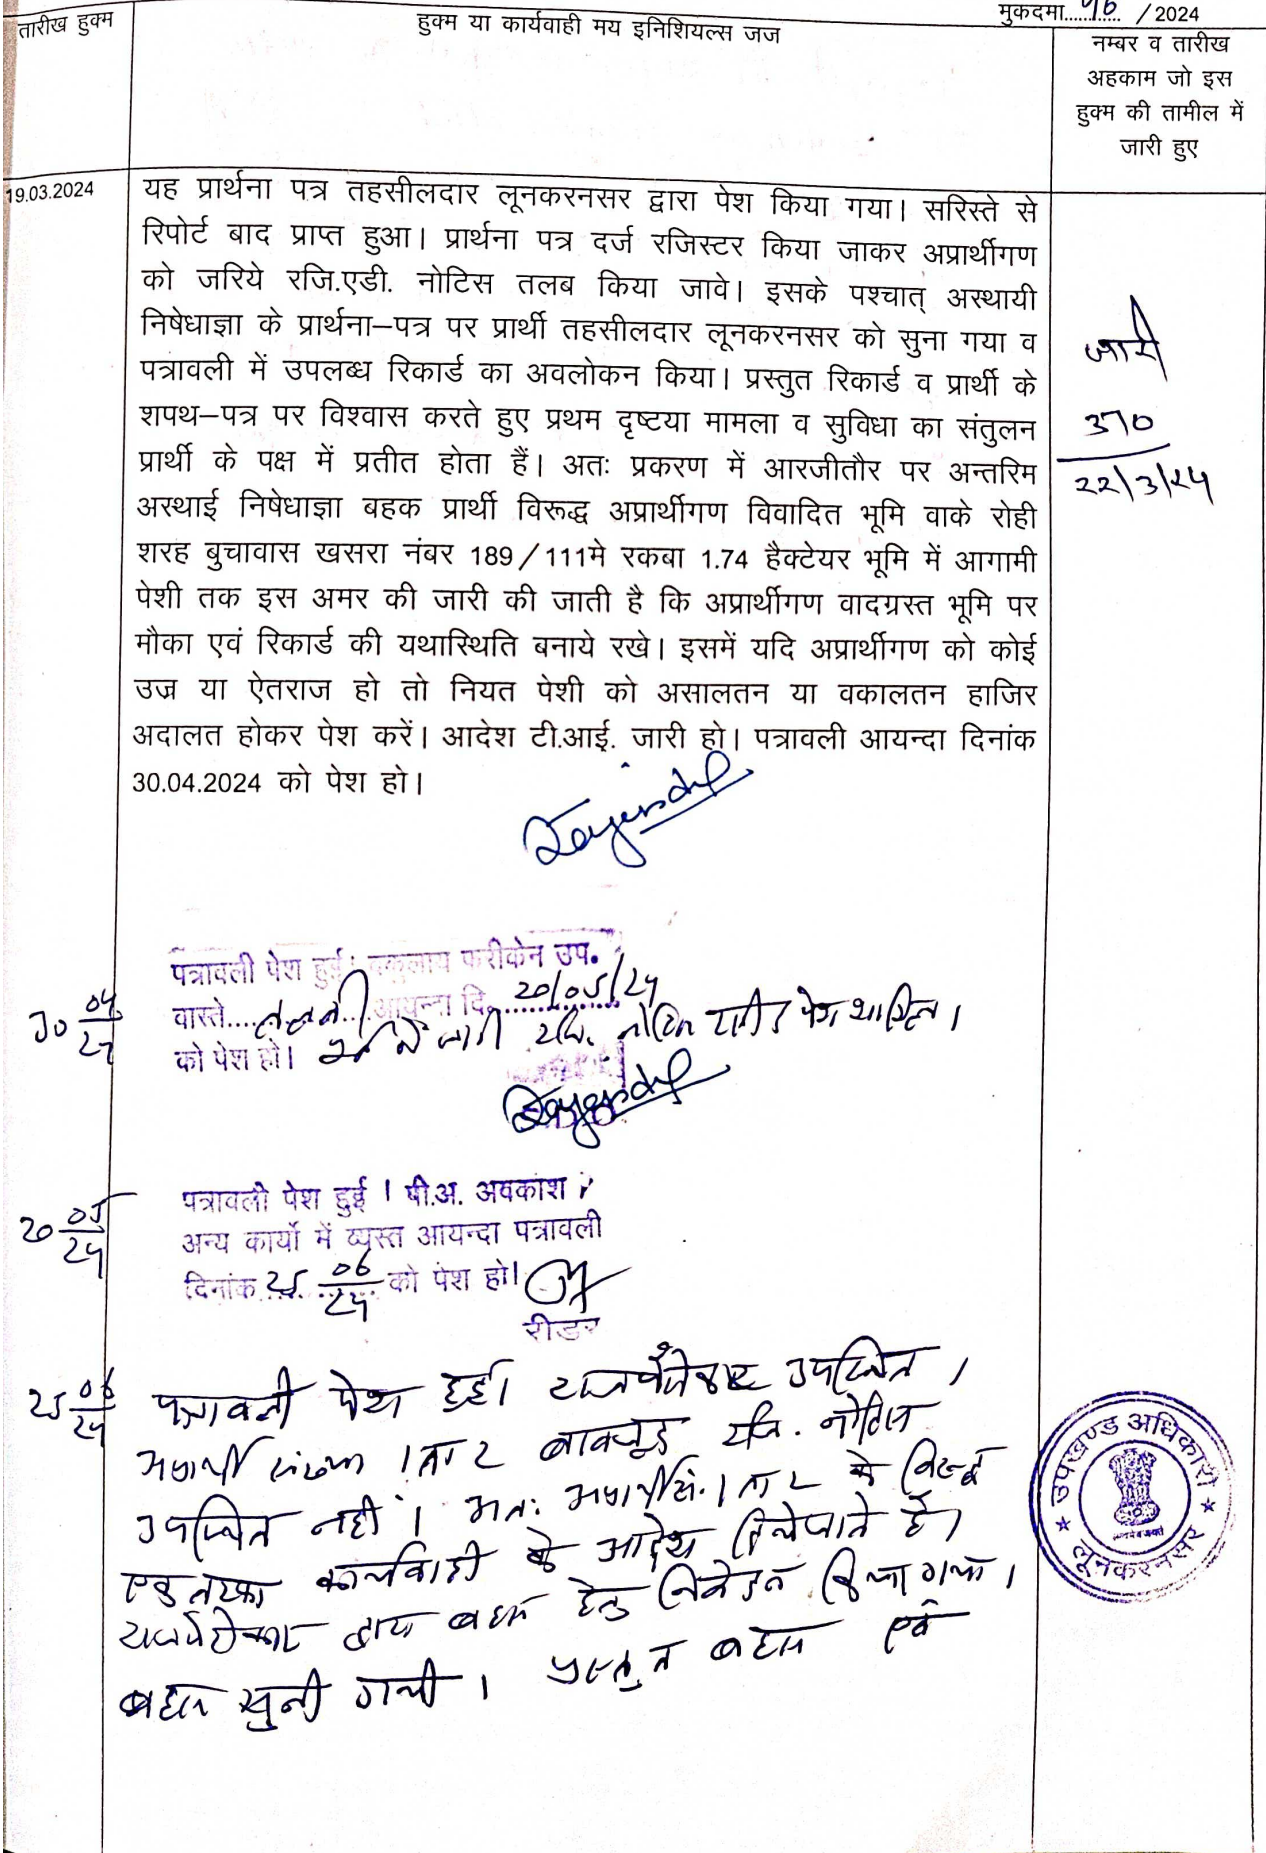 मुकदमा....46.... /2024
तारीख हुक्म
हुक्म या कार्यवाही मय इनिशियल्स जज
नम्बर व तारीख
अहकाम जो इस
हुक्म की तामील में
जारी हुए
19.03.2024
यह प्रार्थना पत्र तहसीलदार लूनकरनसर द्वारा पेश किया गया। सरिस्ते से
रिपोर्ट बाद प्राप्त हुआ। प्रार्थना पत्र दर्ज रजिस्टर किया जाकर अप्रार्थीगण
को जरिये रजि.एडी. नोटिस तलब किया जावे। इसके पश्चात् अस्थायी
निषेधाज्ञा के प्रार्थना–पत्र पर प्रार्थी तहसीलदार लूनकरनसर को सुना गया व
पत्रावली में उपलब्ध रिकार्ड का अवलोकन किया। प्रस्तुत रिकार्ड व प्रार्थी के
शपथ–पत्र पर विश्वास करते हुए प्रथम दृष्टया मामला व सुविधा का संतुलन
प्रार्थी के पक्ष में प्रतीत होता हैं। अतः प्रकरण में आरजीतौर पर अन्तरिम
अस्थाई निषेधाज्ञा बहक प्रार्थी विरूद्ध अप्रार्थीगण विवादित भूमि वाके रोही
शरह बुचावास खसरा नंबर 189/111मे रकबा 1.74 हैक्टेयर भूमि में आगामी
पेशी तक इस अमर की जारी की जाती है कि अप्रार्थीगण वादग्रस्त भूमि पर
मौका एवं रिकार्ड की यथास्थिति बनाये रखे। इसमें यदि अप्रार्थीगण को कोई
उज्र या ऐतराज हो तो नियत पेशी को असालतन या वकालतन हाजिर
अदालत होकर पेश करें। आदेश टी.आई. जारी हो। पत्रावली आयन्दा दिनांक
30.04.2024 को पेश हो।
जारी
370
22/3/24
30 04/24
पत्रावली पेश हुई। वकुलाय फरीकेन उप.
वास्ते....तलबी...आयन्दा दि. 20/05/24
को पेश हो। जारी रजि. नोटिस रसीद पेश शामिल।
20 05/24
पत्रावली पेश हुई । पी.अ. अवकाश
अन्य कार्यो में व्यस्त आयन्दा पत्रावली
दिनांक 25 06/24 को पेश हो।
रीडर
25 06/24
पत्रावली पेश हुई। राजपैरोकार उपस्थित।
अप्रार्थी संख्या 1 ता 2 बावजूद रजि. नोटिस
उपस्थित नहीं। अतः अप्रार्थी सं. 1 ता 2 के विरूद्ध
एक तरफा कार्यवाही के आदेश दिये जाते है।
राजपैरोकार द्वारा बहस हेतु निवेदन किया गया।
बहस सुनी गयी। प्रस्तुत बहस एवं
उपखण्ड अधिकारी
लूनकरनसर